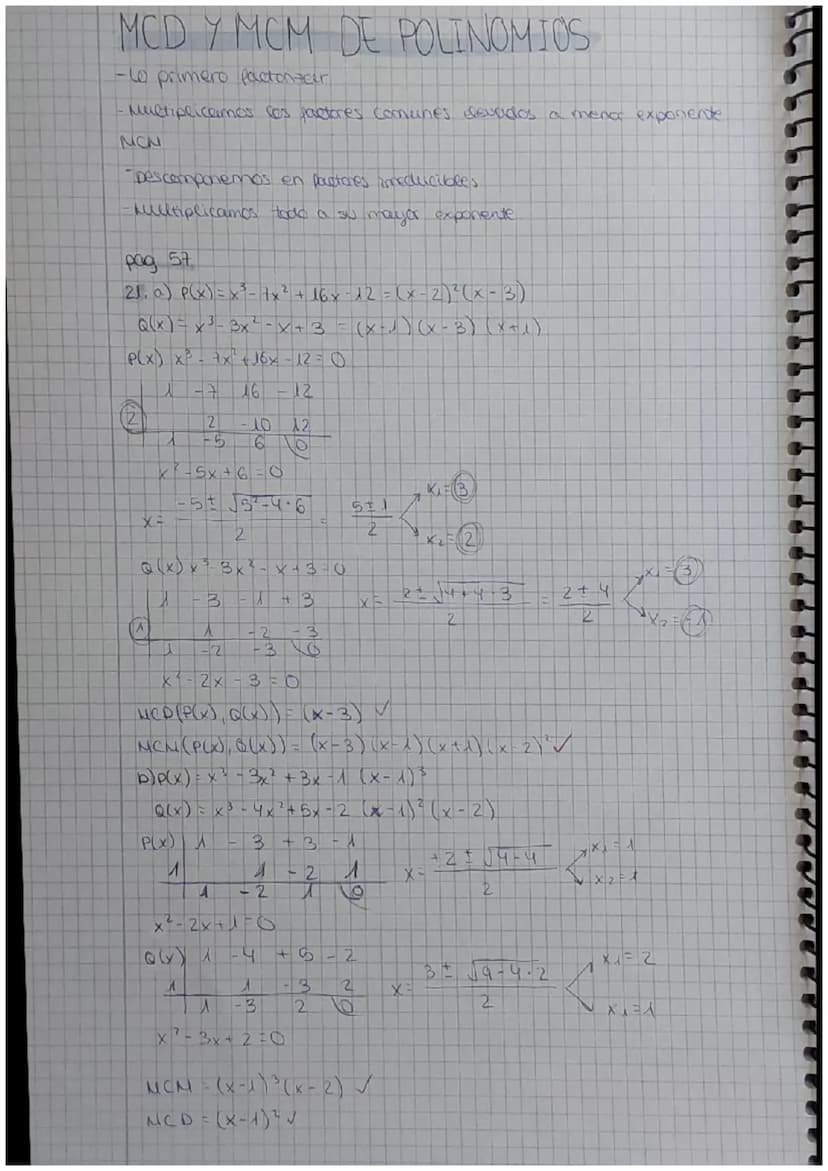 MCD Y MCM DE POLINOMIOS
-Lo primero factorizar
-Multiplicamos los factores comunes elevados a menor exponente
MCM
-Descomponemos en factores irreducibles
-Multiplicamos todo a su mayor exponente
pag 57
21. a) P(x) = x³ - 7x² + 16x - 12 = (x-2)²(x-3)
Q(x) = x³ - 3x² - x + 3 = (x-1)(x-3)(x+1)
P(x) x³ - 7x² + 16x - 12 = 0
1 -7 16 -12
2 2 -10 12
1 -5 6 0
x² - 5x + 6 = 0
x = -5 ± √5²-4·6 / 2 = 5 ± 1 / 2 x₁ = 3 x₂ = 2
Q(x) x³ - 3x² - x + 3 = 0
1 -3 -1 +3 x = 2 ± √4+4·3 / 2 = 2 ± 4 / 2 x₁ = 3 x₂ = -1
1 1 -2 -3
1 -2 -3 0
x² - 2x - 3 = 0
MCD(P(x), Q(x)) = (x-3) ✓
MCM(P(x), Q(x)) = (x-3)(x-1)(x+1)(x-2)² ✓
b) P(x) = x³ - 3x² + 3x - 1 (x-1)³
Q(x) = x³ - 4x² + 5x - 2 (x-1)²(x-2)
P(x) 1 -3 +3 -1
1 1 -2 1 x = +2 ± √4-4 / 2 x₁ = 1 x₂ = 1
1 -2 1 0
x² - 2x + 1 = 0
Q(x) 1 -4 +5 -2
1 1 -3 2 x = 3 ± √9-4·2 / 2 x₁ = 2 x₁ = 1
1 -3 2 0
x² - 3x + 2 = 0
MCM = (x-1)³(x-2) ✓
MCD = (x-1)² ✓